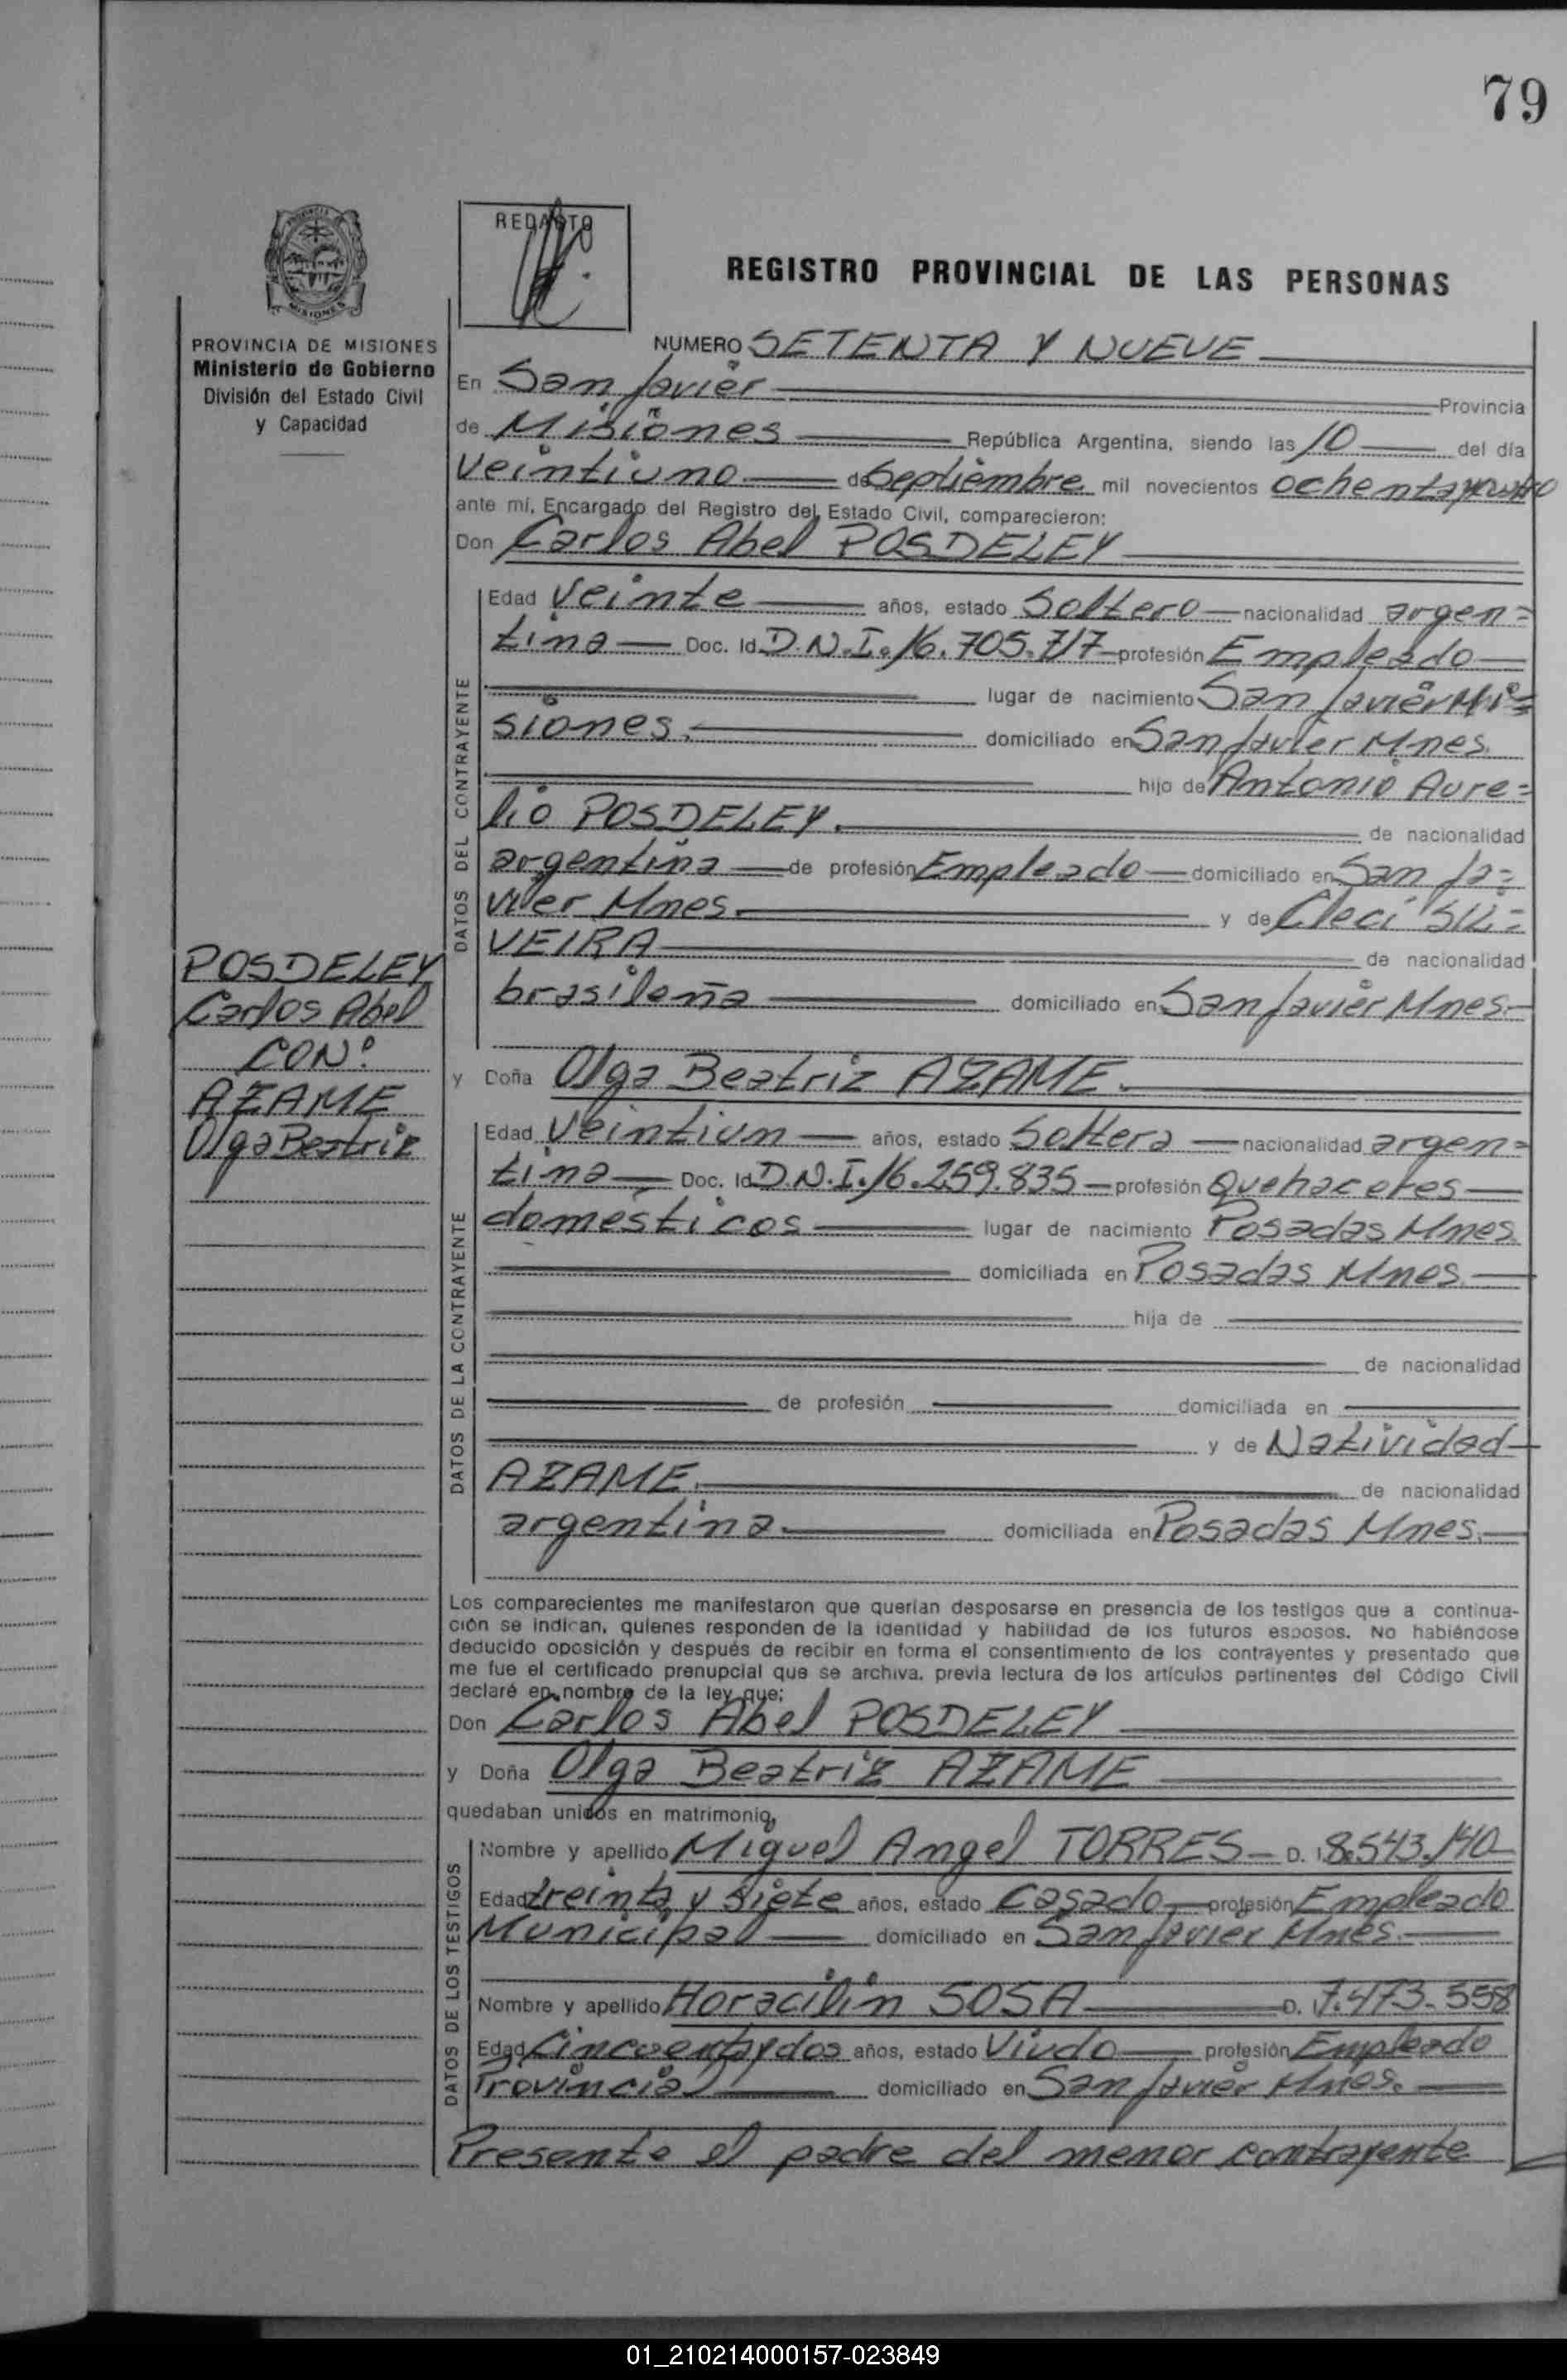 79
REDACTO
REGISTRO PROVINCIAL DE LAS PERSONAS
MISIONES
PROVINCIA DE MISIONES
Ministerio de Gobierno
División del Estado Civil
y Capacidad
NUMERO SETENTA Y NUEVE
En San Javier Provincia
de Misiones República Argentina, siendo las 10 del día
veintiuno de Septiembre mil novecientos ochenta y cuatro
ante mí, Encargado del Registro del Estado Civil, comparecieron:
Don Carlos Abel POSDELEY
DATOS DEL CONTRAYENTE
Edad Veinte años, estado Soltero nacionalidad argen=
tina Doc. Id. D.N.I. 16.705.717 profesión Empleado
lugar de nacimiento San Javier Mi=
siones. domiciliado en San Javier Mnes.
hijo de Antonio Aure=
lio POSDELEY. de nacionalidad
argentina de profesión Empleado domiciliado en San Ja=
vier Mnes. y de Cleci SIL=
VEIRA de nacionalidad
brasileña domiciliado en San Javier Mnes.
POSDELEY
Carlos Abel
CON:
AZAME
Olga Beatriz
y Doña Olga Beatriz AZAME.
DATOS DE LA CONTRAYENTE
Edad Veintiun años, estado Soltera nacionalidad argen=
tina Doc. Id. D.N.I. 16.259.835 profesión Quehaceres
domésticos lugar de nacimiento Posadas Mnes.
domiciliada en Posadas Mnes.
hija de
de nacionalidad
de profesión domiciliada en
y de Natividad
AZAME. de nacionalidad
argentina. domiciliada en Posadas Mnes.
Los comparecientes me manifestaron que querían desposarse en presencia de los testigos que a continua-
ción se indican, quienes responden de la identidad y habilidad de los futuros esposos. No habiéndose
deducido oposición y después de recibir en forma el consentimiento de los contrayentes y presentado que
me fue el certificado prenupcial que se archiva, previa lectura de los artículos pertinentes del Código Civil
declaré en nombre de la ley que:
Don Carlos Abel POSDELEY
y Doña Olga Beatriz AZAME
quedaban unidos en matrimonio,
DATOS DE LOS TESTIGOS
Nombre y apellido Miguel Angel TORRES D. I. 8.543.140
Edad treinta y siete años, estado Casado profesión Empleado
Municipal domiciliado en San Javier Mnes.
Nombre y apellido Horacilin SOSA D. I. 7.473.558
Edad Cincuenta y dos años, estado Viudo profesión Empleado
Provincial domiciliado en San Javier Mnes.
Presente el padre del menor contrayente
01_210214000157-023849